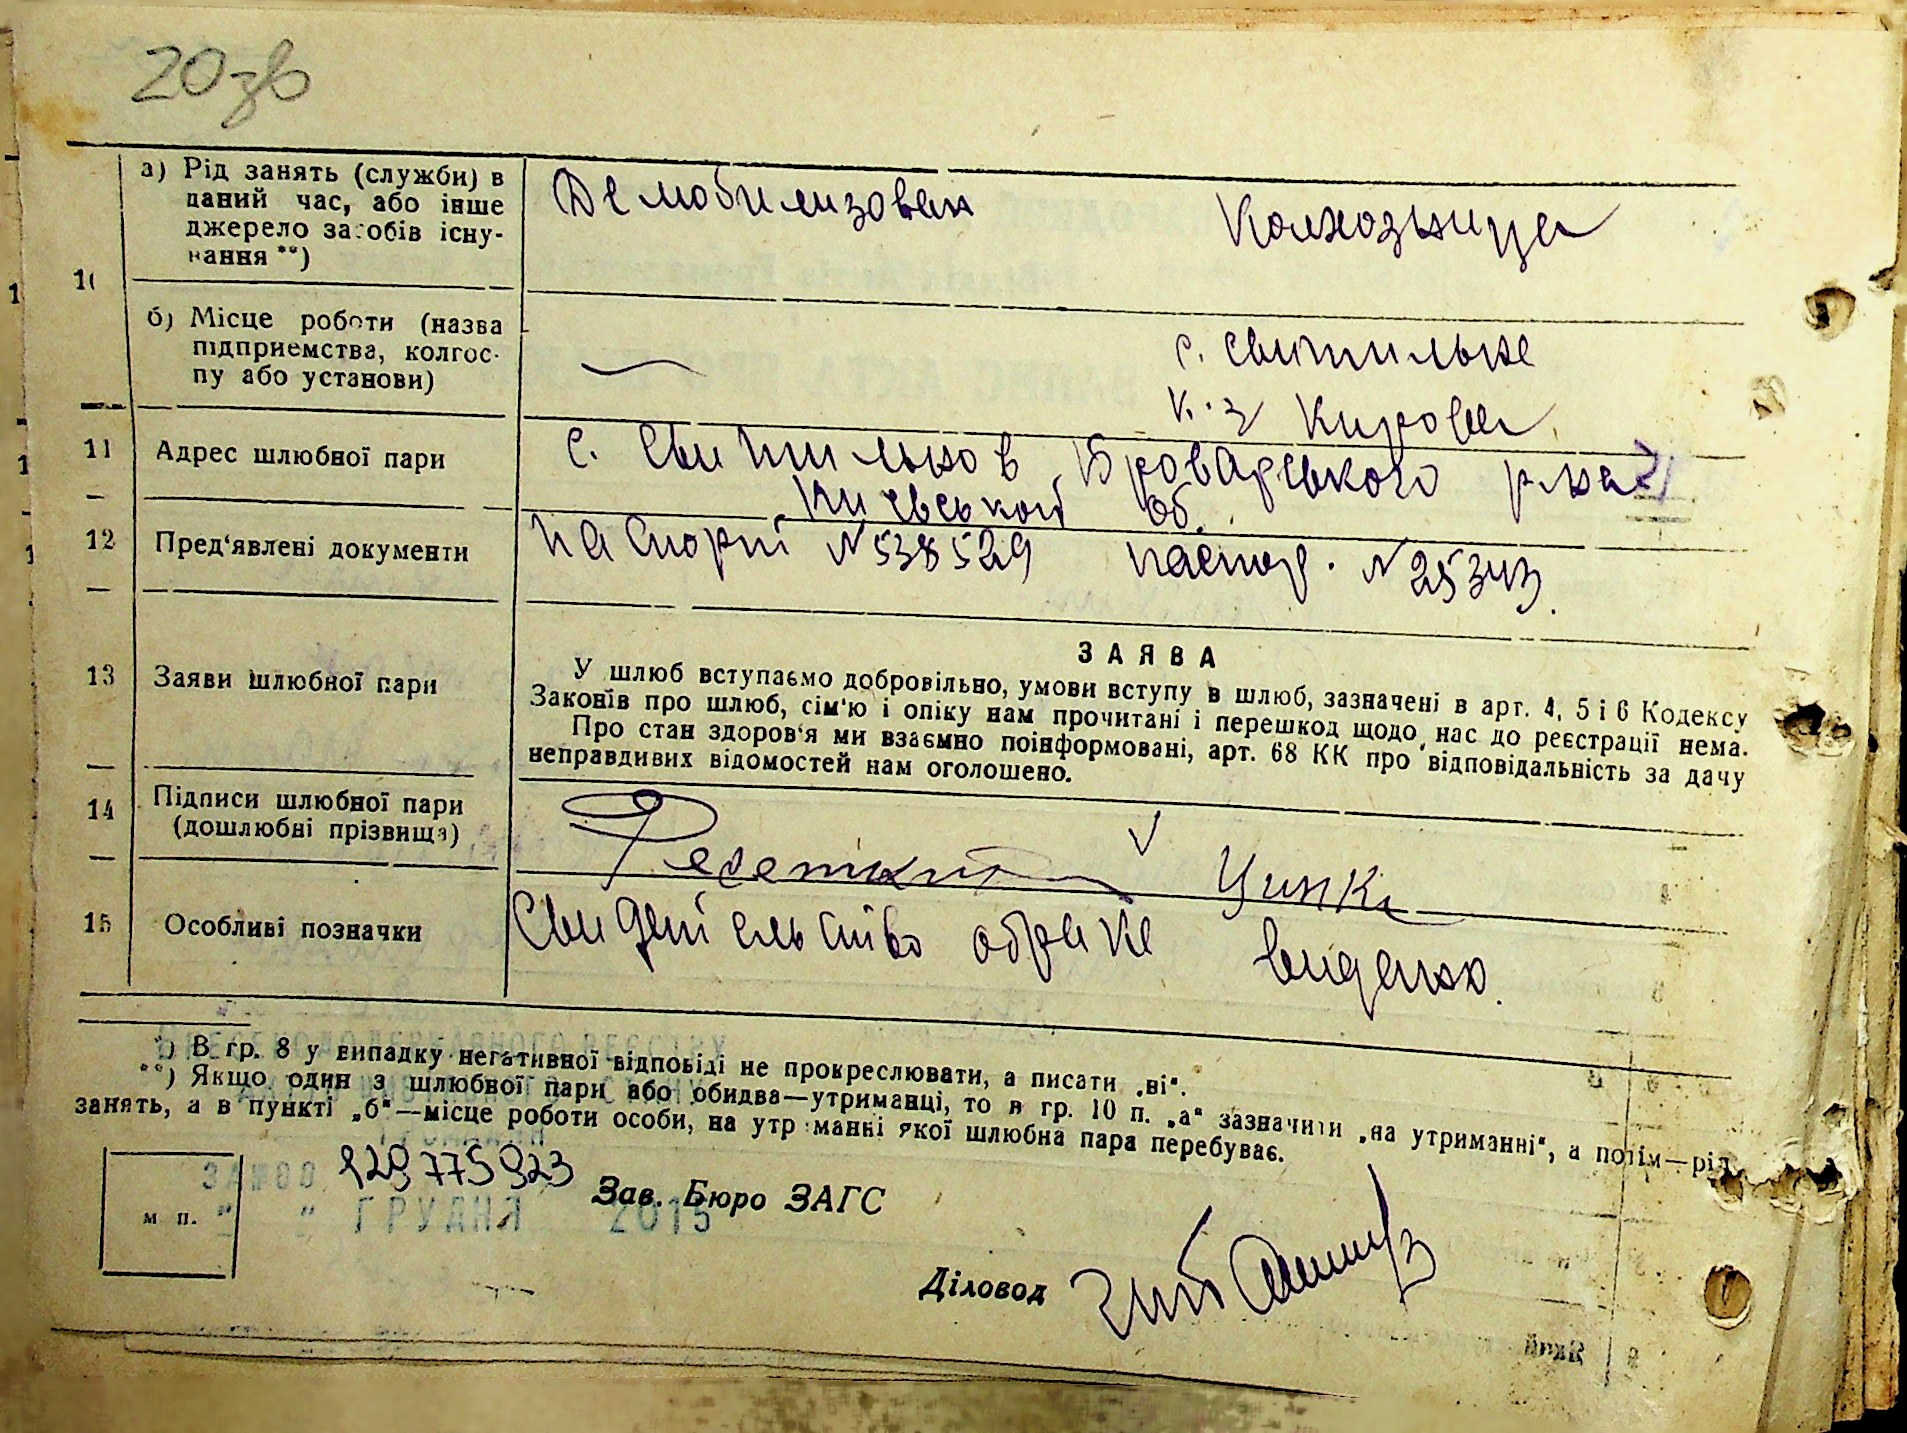 20зв
а) Рід занять (служби) в
даний час, або інше
джерело засобів існу-
вання **)
Демобилизован
Колхозница
10
б) Місце роботи (назва
підприємства, колгос-
пу або установи)
—
с. Свитильне
К-з Кирова
11
Адрес шлюбної пари
с. Свитильнов Броварського р-на
Киевськой об.
12
Пред'явлені документи
паспорт №538529 паспор. №25343.
13
Заяви шлюбної пари
ЗАЯВА
У шлюб вступаємо добровільно, умови вступу в шлюб, зазначені в арт. 4, 5 і 6 Кодексу
Законів про шлюб, сім'ю і опіку нам прочитані і перешкод щодо нас до реєстрації нема.
Про стан здоров'я ми взаємно поінформовані, арт. 68 КК про відповідальність за дачу
неправдивих відомостей нам оголошено.
14
Підписи шлюбної пари
(дошлюбні прізвища)
15
Особливі позначки
Свидетельство обраке видано.
*) В гр. 8 у випадку негативної відповіді не прокреслювати, а писати „ні“.
**) Якщо один з шлюбної пари або обидва—утриманці, то в гр. 10 п. „а“ зазначити „на утриманні“, а потім—рід
занять, а в пункті „б“—місце роботи особи, на утриманні якої шлюбна пара перебуває.
129775923
" " ГРУДНЯ 2015
м п.
Зав. Бюро ЗАГС
Діловод